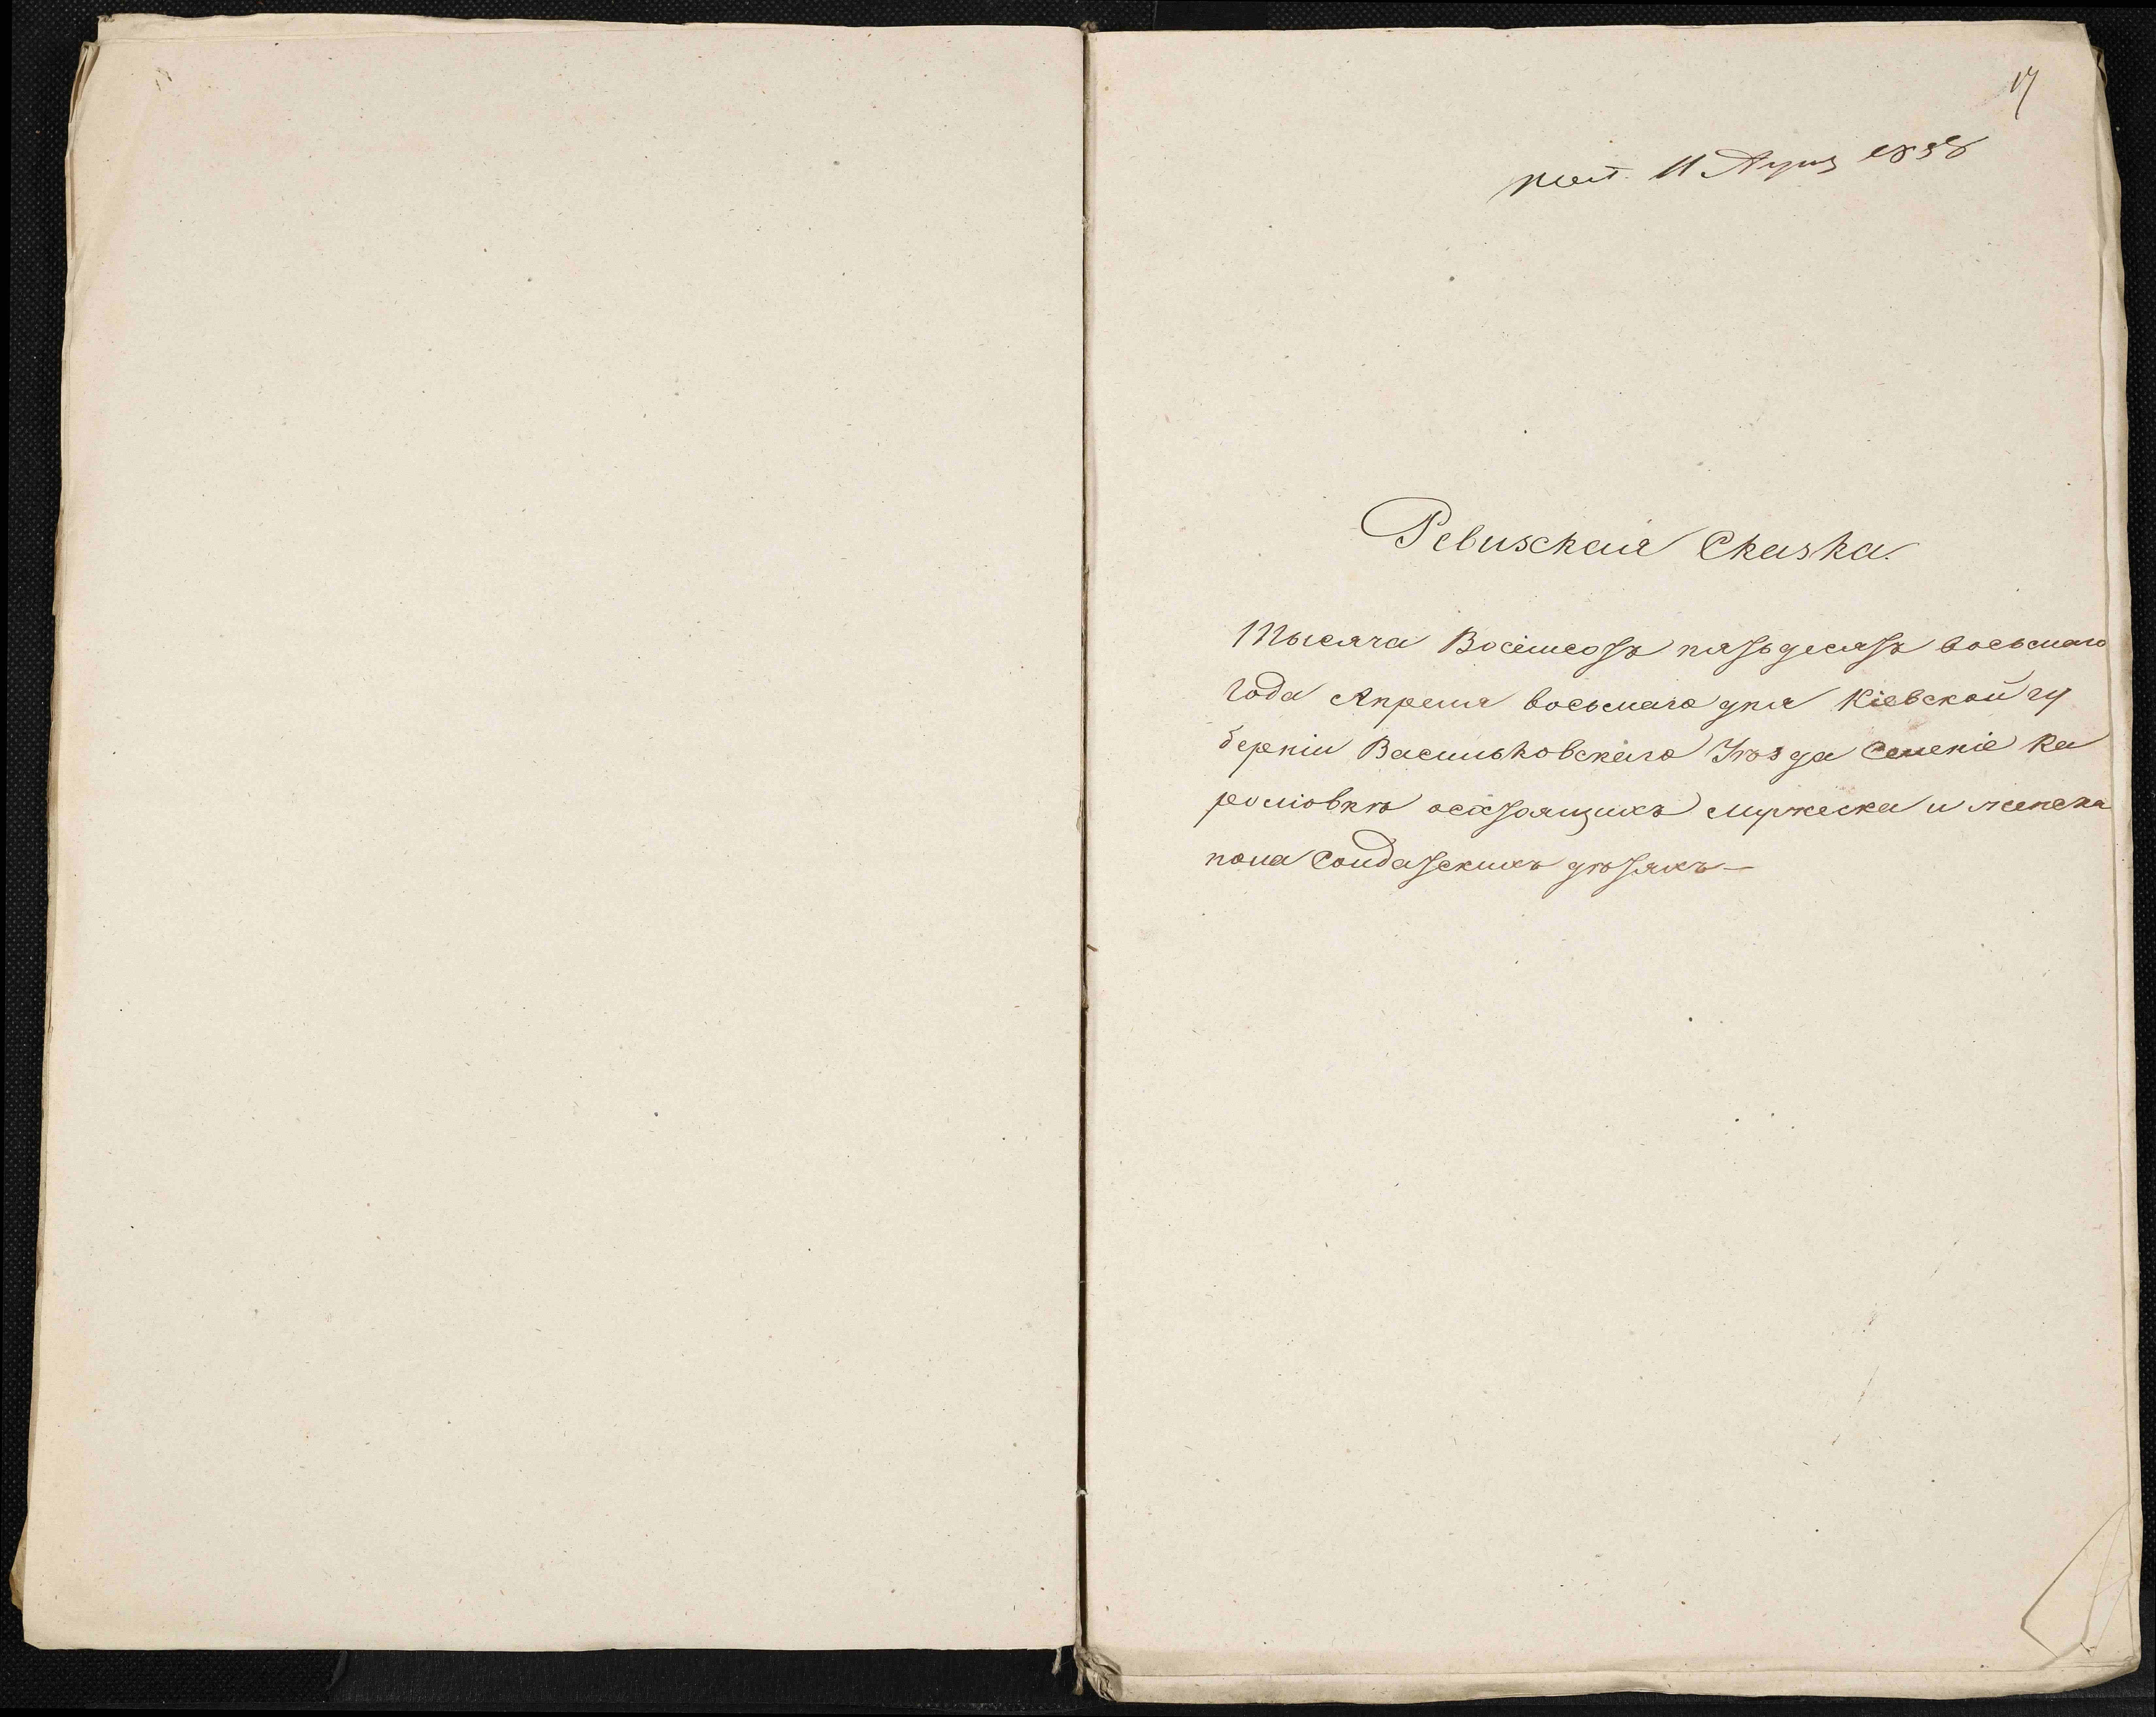 17
11 1858
Ревизская Сказка.
Тысяча Восемсотъ пятьдесятъ восьмаго
года Апреля восьмаго дня Кіевской гу
берніи Васильковскаго Уѣзда Селеніе Ка
рапіовкѣ состоящихъ мужеска и женска
пола Солдатскихъ дѣтяхъ —